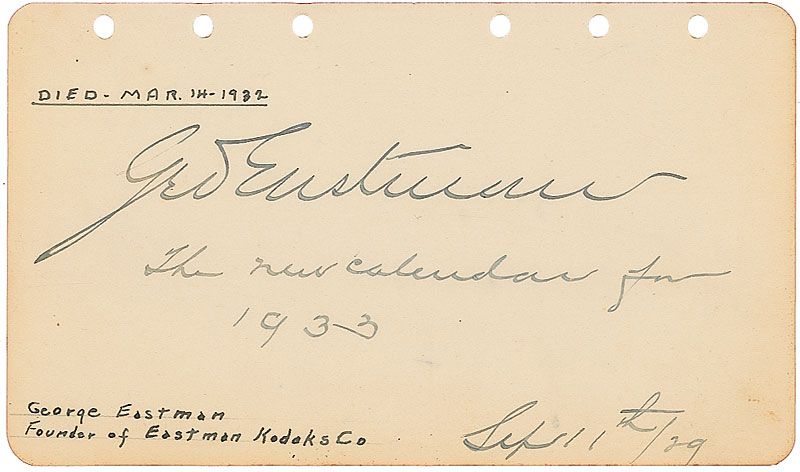 DIED - MAR. 14-1932
Geo Eastman
The new calendar for
1933
George Eastman
Founder of Eastman Kodaks Co
Sep 11th/29